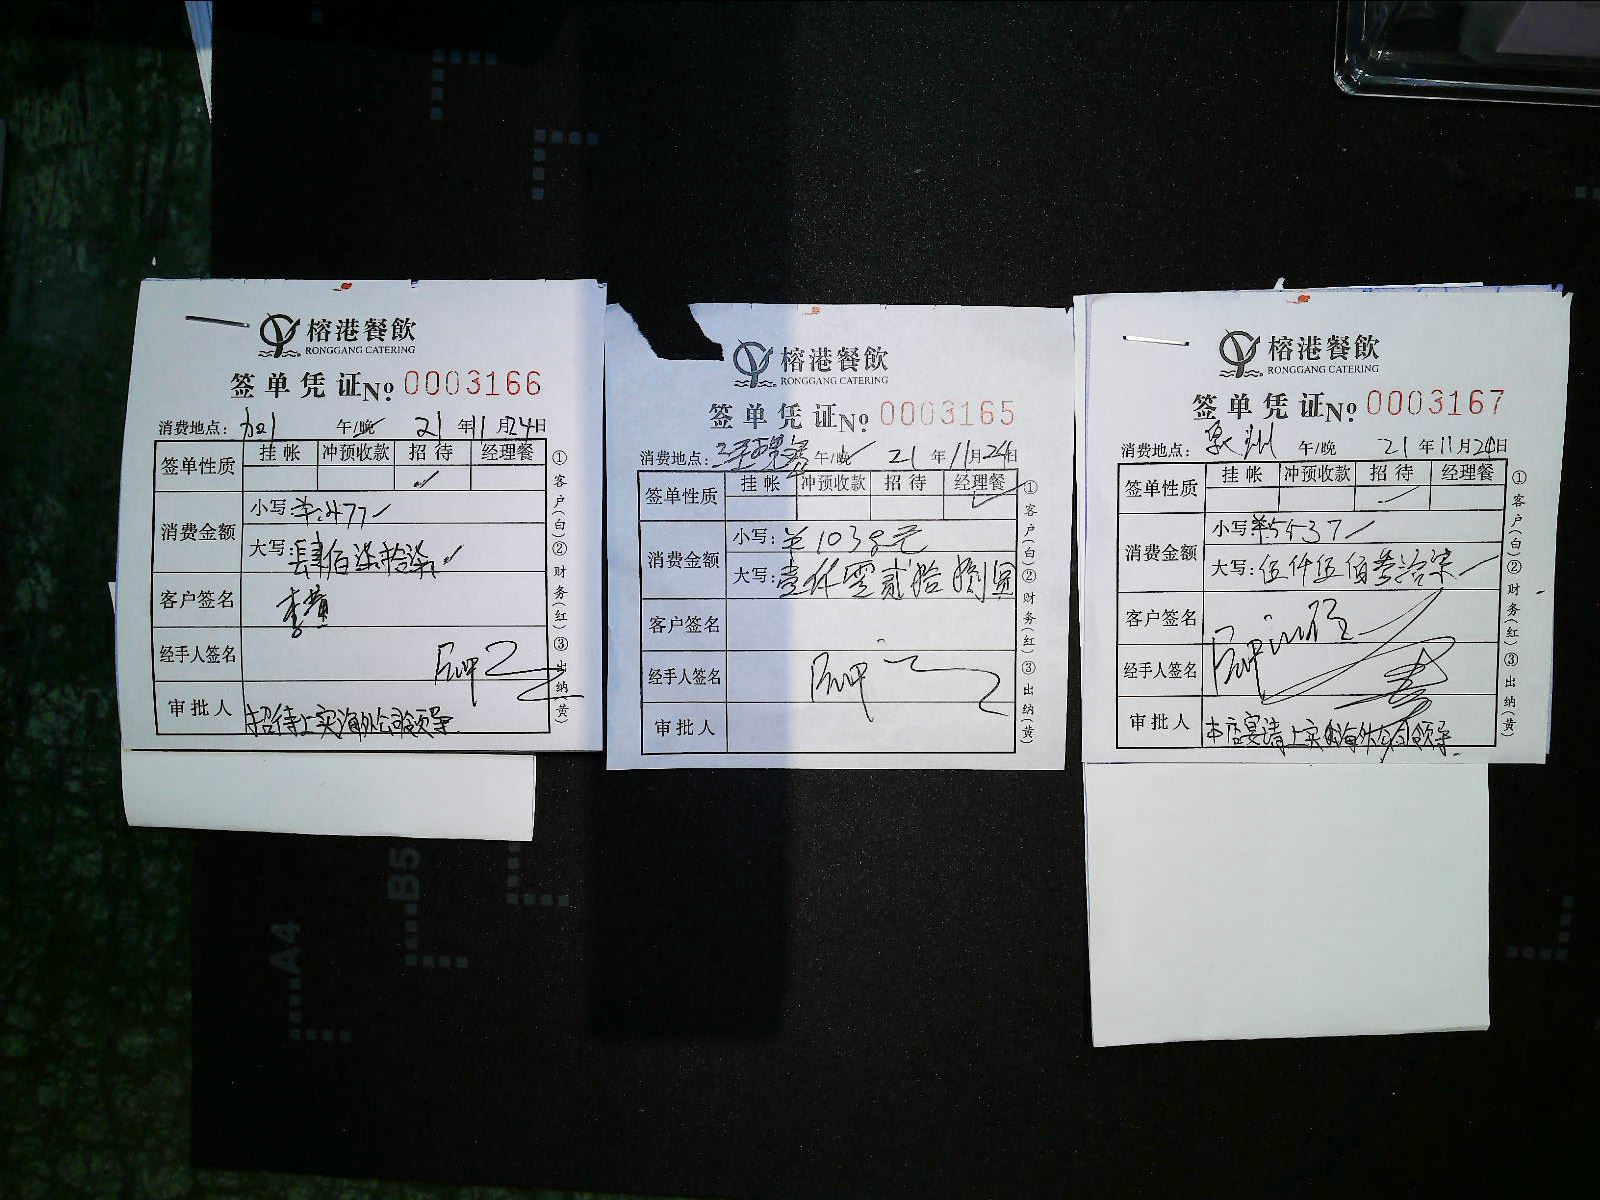 榕港餐飲
RONGGANG CATERING
签单凭证 No. 0003166
消费地点: 加1 午/晚 21 年 11 月 24 日
签单性质 挂帐 冲预收款 招待 经理餐
✓
消费金额 小写: ¥:477
大写: 肆佰柒拾柒
客户签名
经手人签名
审批人 招待上实海外公司领导
①客户(白)②财务(红)③出纳(黄)
榕港餐飲
RONGGANG CATERING
签单凭证 No. 0003165
消费地点: 午/晚 21 年 11 月 24 日
签单性质 挂帐 冲预收款 招待 经理餐
✓
消费金额 小写: ¥ 1038元
大写: 壹仟零贰拾捌圆
客户签名
经手人签名
审批人
①客户(白)②财务(红)③出纳(黄)
榕港餐飲
RONGGANG CATERING
签单凭证 No. 0003167
消费地点: 泉州 午/晚 21 年 11 月 24 日
签单性质 挂帐 冲预收款 招待 经理餐
✓
消费金额 小写: ¥5537
大写: 伍仟伍佰叁拾柒
客户签名
经手人签名
审批人 本店宴请上实海外公司领导
①客户(白)②财务(红)③出纳(黄)
B5
A4